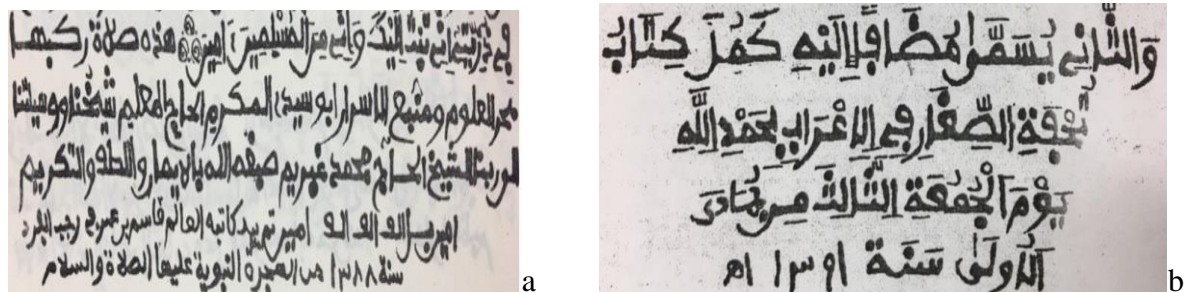 في ذريتي إني تبت إليك وإني من المسلمين امين هذه صلاة ركبها
بحر العلوم ومنبع للاسرار ابو سيدي المكرم الحاج المعلم شيخنا ووسيلتنا
الشيخ الحاج محمد غبريم صبغه الله بالايمان واللطف والتكريم
امين بالف الف الف امين تم بيد كاتبه العالم قاسم بن عمر في رجب
سنة ١٣٨٨ من الهجرة النبوية عليها الصلاة والسلام
a
وَالثَّانِي يُسَمَّوا مُضَافًا إِلَيْهِ كَمُلَ كِتَابُ
تُحْفَةِ الصِّغَارِ فِي الِاعْرَابِ بِحَمْدِ اللَّهِ
يَوْمَ الْجُمُعَةِ الثَّالِثَ مِن جُمَادَى
الُاولَى سَنَةَ
b